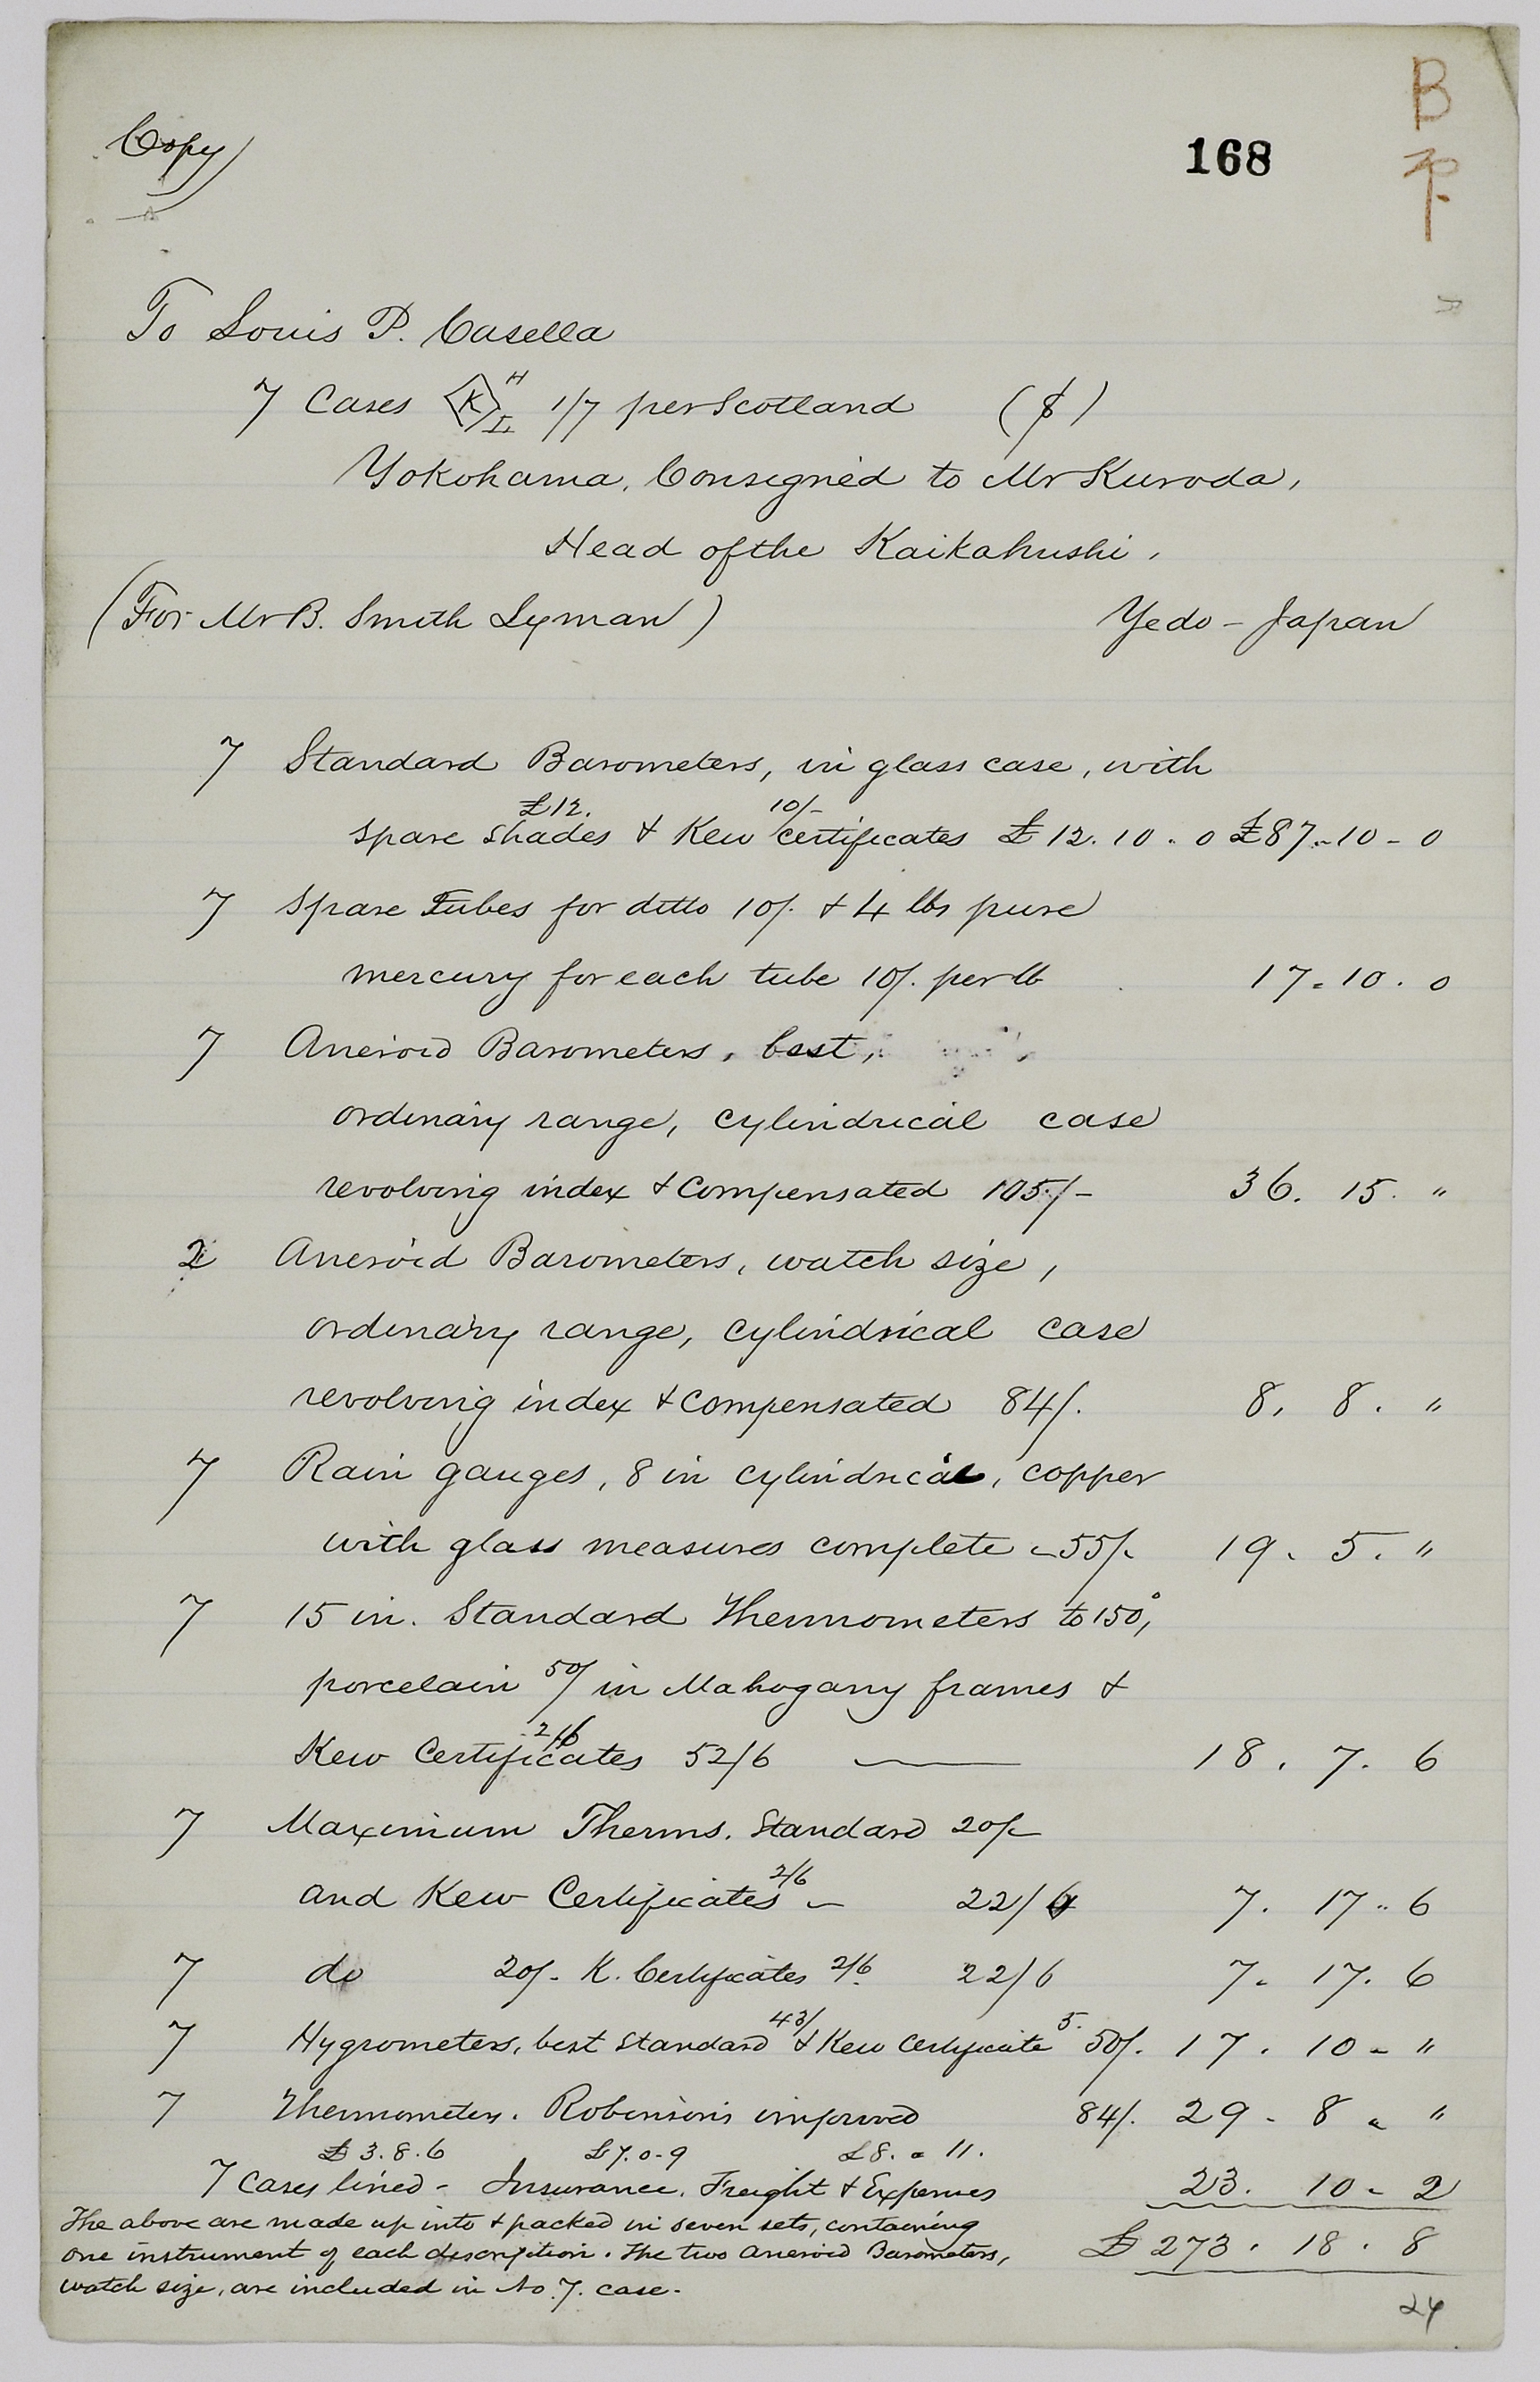 Copy
168
B
To Louis P. Casella
7 Cases K H L 1/7 per Scotland ($)
Yokohama, Consigned to Mr Kuroda,
Head of the Kaikakushi,
(For Mr B. Smith Lyman)
Yedo - Japan
7 Standard Barometers, in glass case, with
£12. 10/-
spare shades & Kew certificates £12.10.0 £87-10-0
7 Spare Tubes for ditto 10/. & 4 lbs pure
mercury for each tube 10/. per lb 17.10.0
7 Aneroid Barometers, best,
ordinary range, cylindrical case
revolving index & Compensated 105/- 36.15. "
2 Aneroid Barometers, watch size,
ordinary range, cylindrical case
revolving index & Compensated 84/. 8.8. "
7 Rain gauges, 8 in cylindrical, copper
with glass measures complete - 55/- 19.5. "
7 15 in. Standard Thermometers to 150°,
porcelain 50/ in Mahogany frames &
2/6
Kew Certificates 52/6 18.7.6
7 Maximum Therms. Standard 20/-
and Kew Certificates 2/6 - 22/6 7.17.6
7 do 20/- K. Certificates 2/6 22/6 7.17.6
7 Hygrometers, best Standard 43/ & Kew Certificate 5. 50/. 17.10 - "
7 Thermometers. Robinson's improved 84/. 29.8 "
£3.8.6 £7.0-9 £8. " 11.
7 Cases lined - Insurance, Freight & Expenses 23.10-2
The above are made up into & packed in seven sets, containing
one instrument of each description. The two aneroid Barometers, £273.18.8
watch size, are included in No 7. case.
24